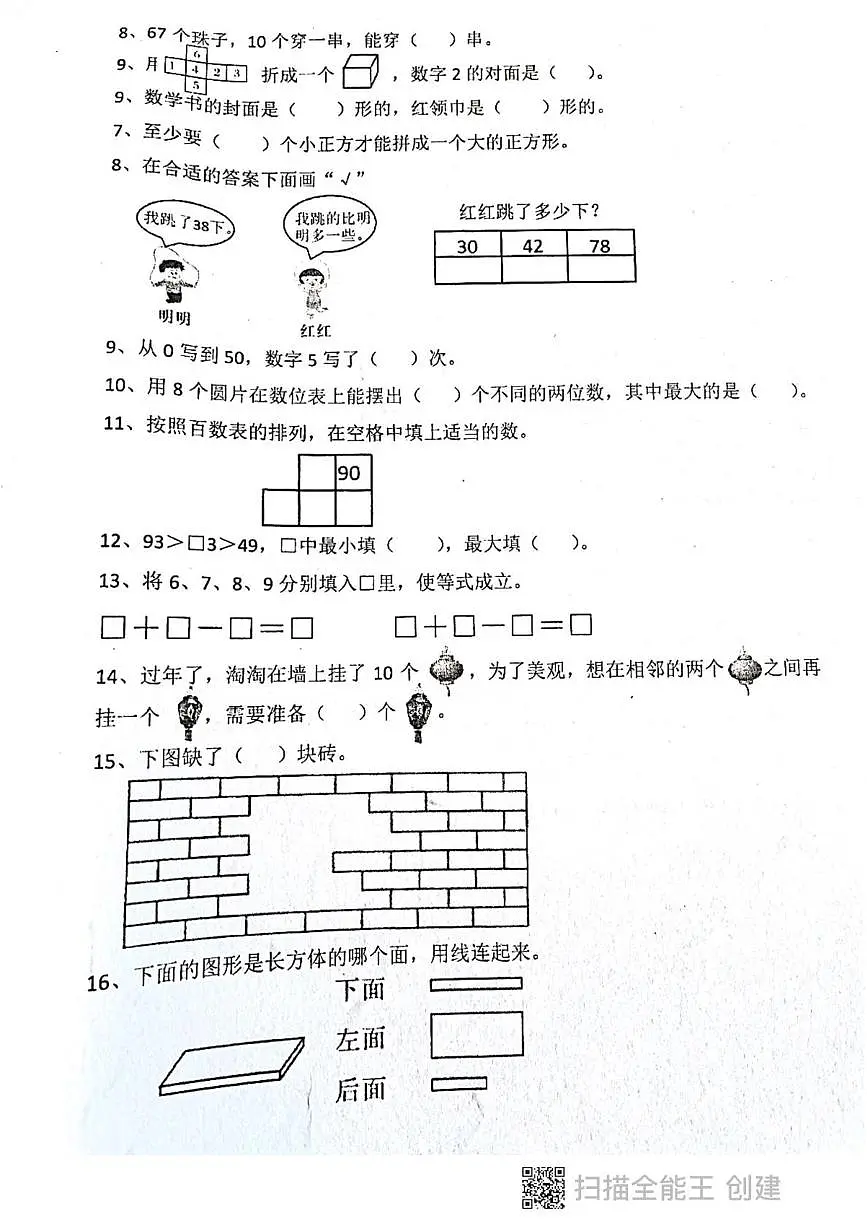 8、67个珠子，10个穿一串，能穿（　　）串。
9、用 折成一个 ，数字2的对面是（　　）。
6
1 4 2 3
5
9、数学书的封面是（　　）形的，红领巾是（　　）形的。
7、至少要（　　）个小正方才能拼成一个大的正方形。
8、在合适的答案下面画“√”
我跳了38下。
我跳的比明
明多一些。
明明
红红
红红跳了多少下？
30 42 78
9、从0写到50，数字5写了（　　）次。
10、用8个圆片在数位表上能摆出（　　）个不同的两位数，其中最大的是（　　）。
11、按照百数表的排列，在空格中填上适当的数。
90
12、93＞□3＞49，□中最小填（　　），最大填（　　）。
13、将6、7、8、9分别填入□里，使等式成立。
□＋□－□＝□　　□＋□－□＝□
14、过年了，淘淘在墙上挂了10个 ，为了美观，想在相邻的两个 之间再
挂一个 ，需要准备（　　）个 。
15、下图缺了（　　）块砖。
16、下面的图形是长方体的哪个面，用线连起来。
下面
左面
后面
扫描全能王 创建